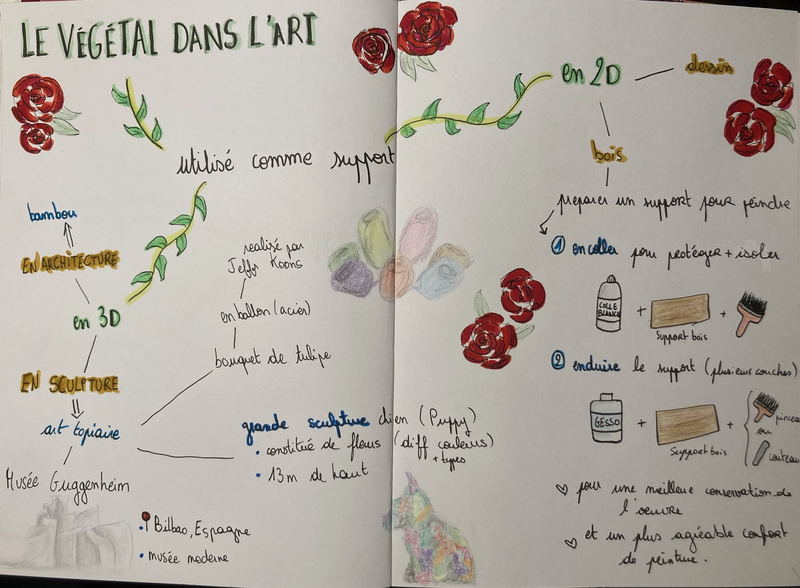 LE VÉGÉTAL DANS L'ART
utilisé comme support
bambou
EN ARCHITECTURE
en 3D
EN SCULPTURE
art topiaire
Musée Guggenheim
Bilbao, Espagne
• musée moderne
realisé par
Jeffs Koons
en ballon (acier)
bouquet de tulipe
grande sculpture chien (Puppy)
• constitué de fleurs (diff couleurs)
+ types
• 13m de haut
en 2D
dessin
bois
preparer un support pour peindre
1 encoller pour protéger + isoler
COLLE
BLANCHE
+
+
Support bois
2 enduire le support (plusieurs couches)
GESSO
+
+
Support bois
pinceau
ou
couteau
♡ pour une meilleure conservation de
l'oeuvre
♡ et un plus agréable confort
de peinture.